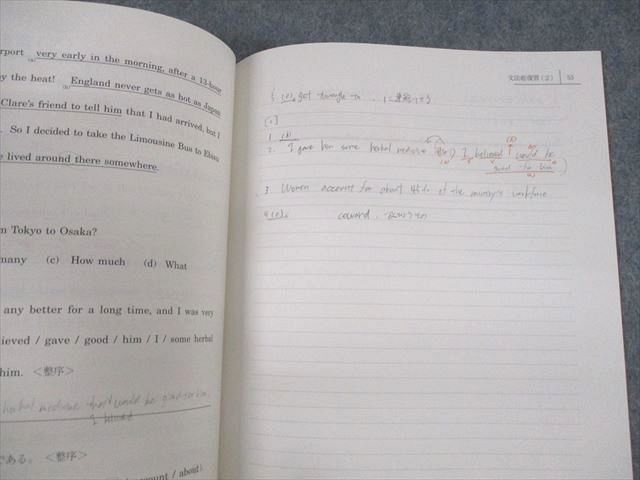 rport very early in the morning, after a 12-hour
(a)
y the heat! England never gets as hot as Japan
(b)
Clare's friend to tell him that I had arrived, but I
So I decided to take the Limousine Bus to Ebisu
e lived around there somewhere.
m Tokyo to Osaka?
many (c) How much (d) What
any better for a long time, and I was very
ieved / gave / good / him / I / some herbal
him. <整序>
herbal medicine that would be good for him.
I believed
である。 <整序>
account / about).
文法総復習(2) 53
(c) get through to
1. (b)
2. I gave him some herbal medicine I believed would be
good for him
3 Women account for about of the country's workforce
4 (c) coward